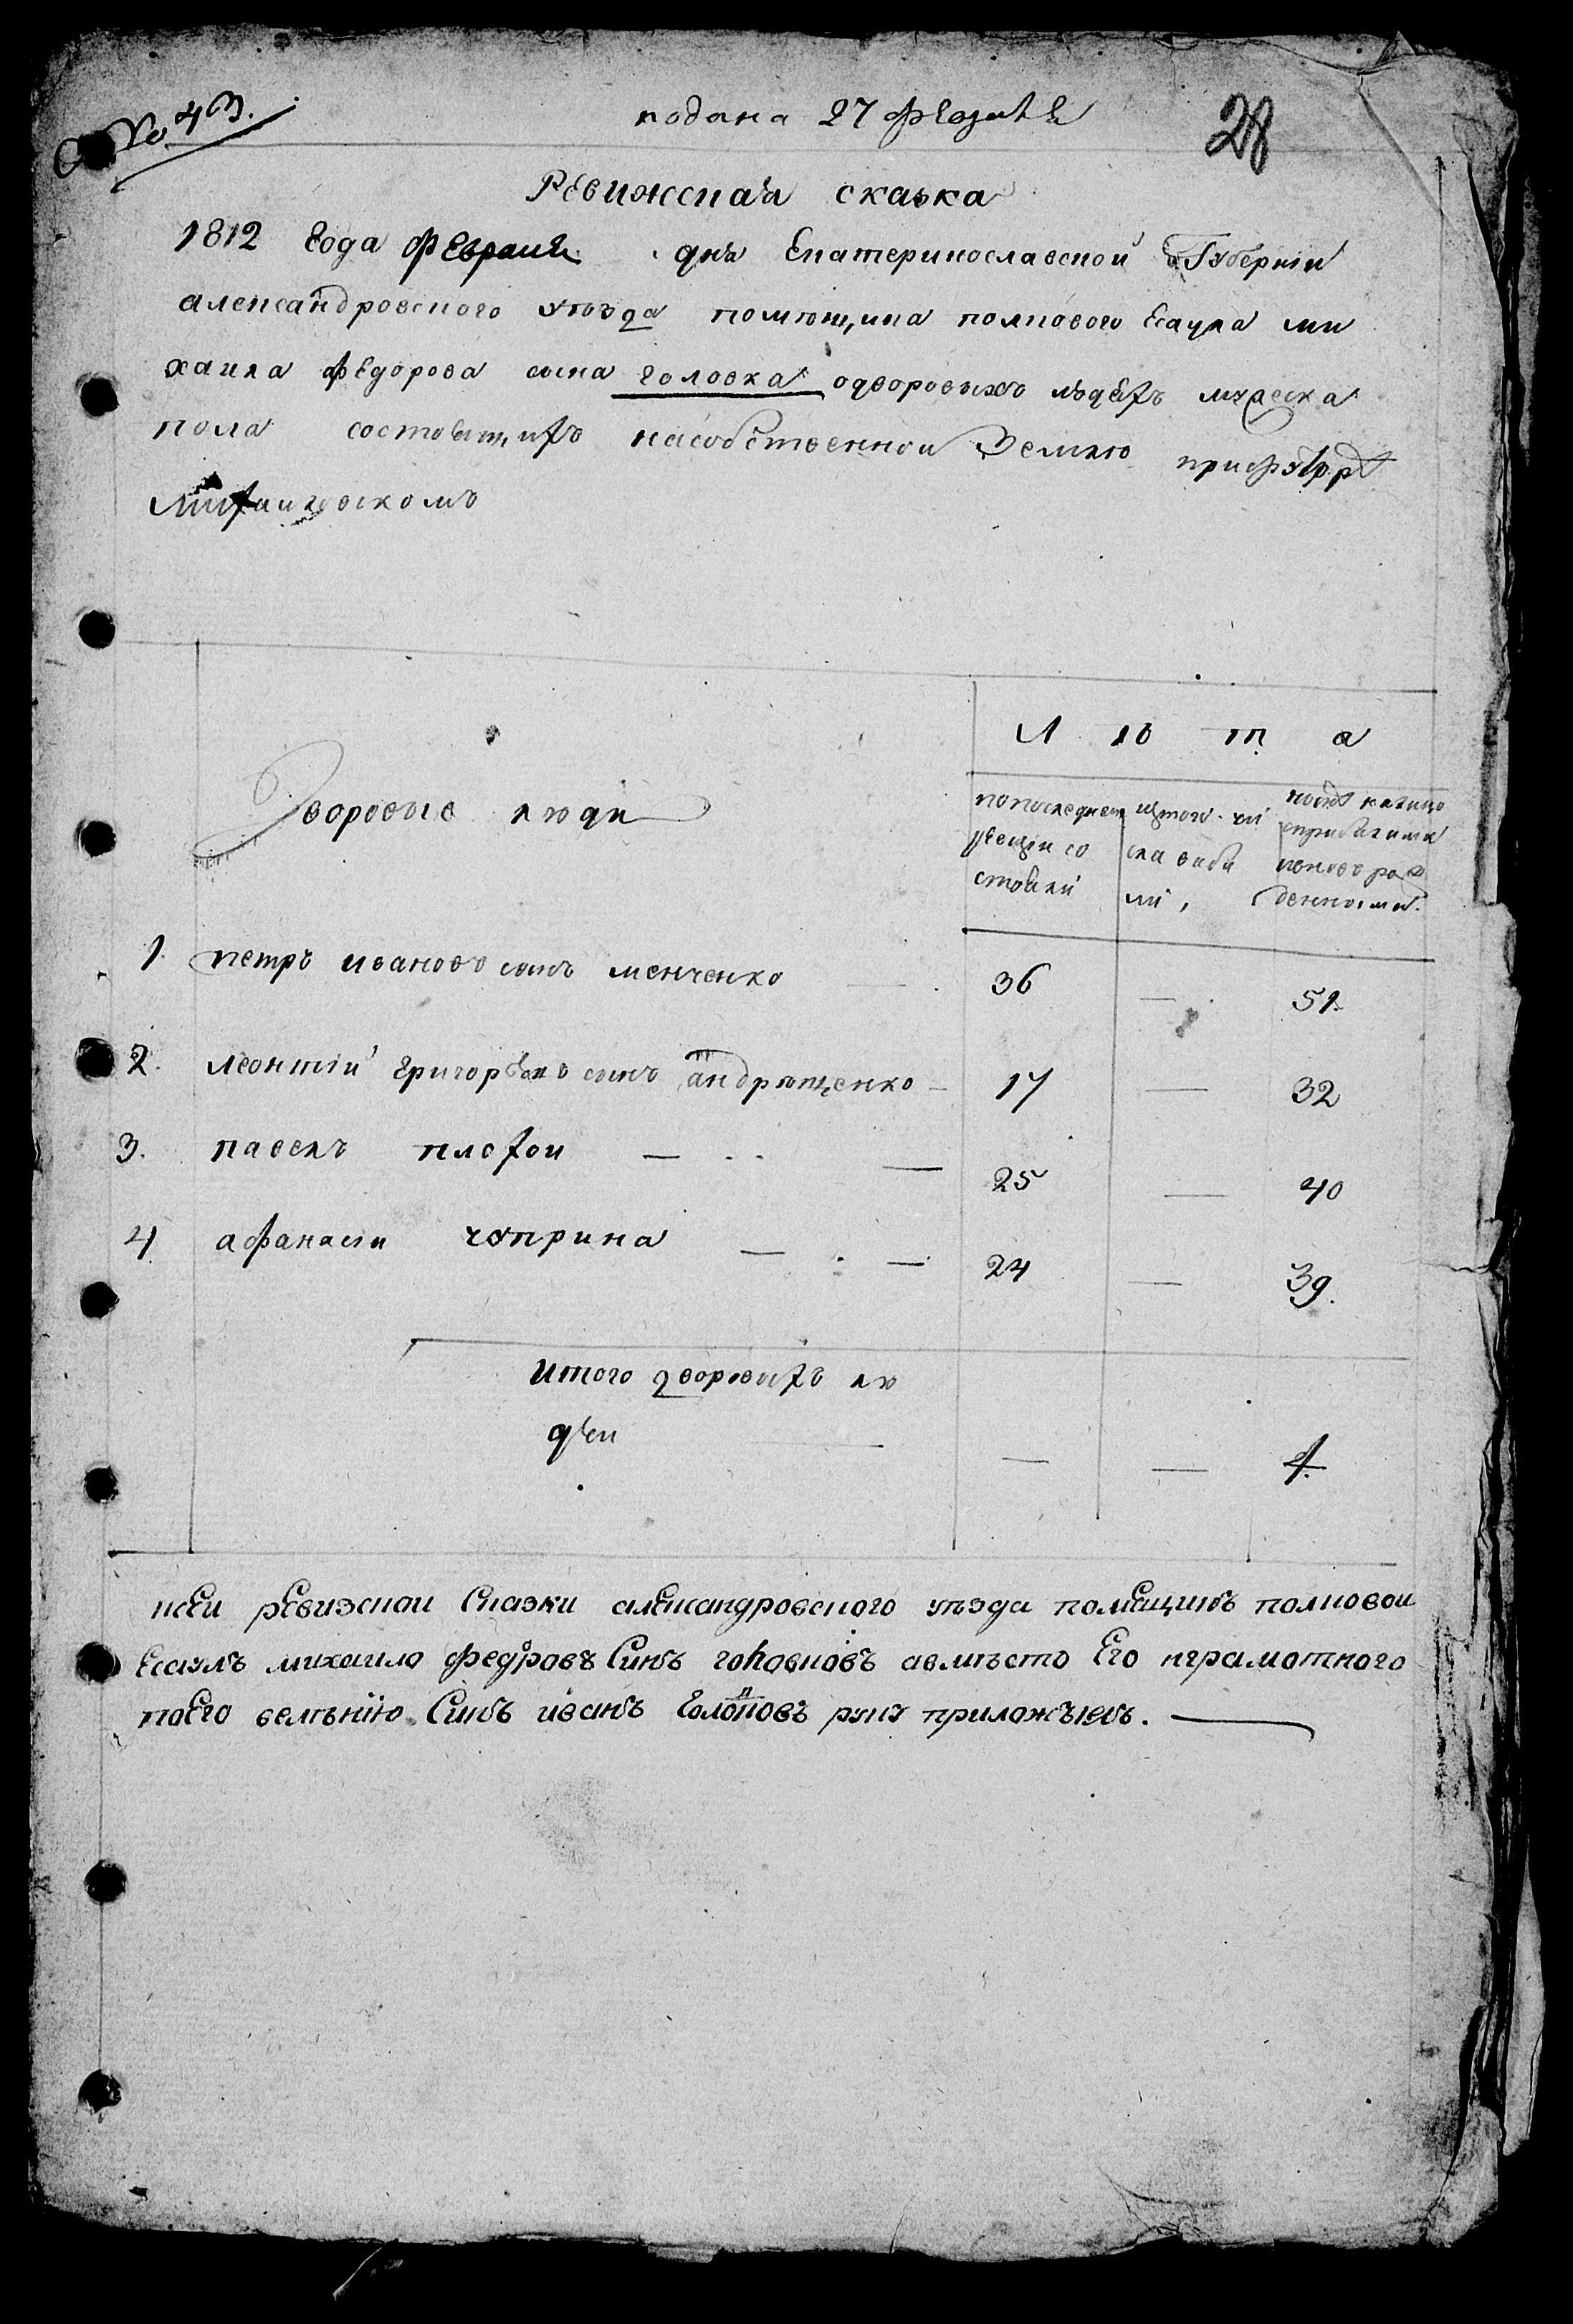 № 43.
подана 27 февраля
28
Ревижская сказка
1812 года февраля дня Екатеринославской Губернiи
александровского уъзда помъщика полкового Есаула ми
хаила федорова сына головка одворовыхъ людехъ мужеска
пола состоящихъ насобственной Землъ прихуторъ
михаиловскомъ
Л ъ т а
Дворовые люди
попоследнеи ревизiи состояли
изтого числа выбыли,
ныне налицо сприбылыми ивновъ рожденными.
1. петръ ивановъ сынъ менченко — 36 — 51.
2. леонтiй григорьевъ сынъ андрющенко — 17 — 32
3. павелъ плохои — — 25 — 40
4 афанасiи чуприна — — 24 — 39.
Итого дворовыхъ лю
деи — — — 4.
ксеи ревизскои Сказки александровского уъзда помещикъ полковои
Есаулъ михаило федоровъ Синъ головковъ авмъсто Его награмотного
поЕго велънiю Синъ иванъ Головковъ руку приложылъ.